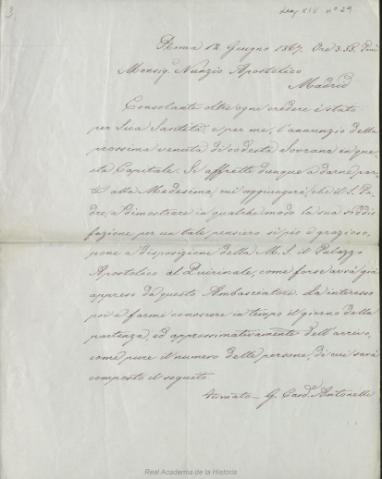 3
Leg XIV nº 29
Roma 12 Giugno 1867. Ore 3.55. pom
Monsig. Nunzio Apostolico
Madrid
Consolante oltre ogni credere è stato
per Sua Santità, e per me, l'annunzio della
prossima venuta di codesta Sovrana in que
sta Capitale. Si affretti dunque a darne par
te alla Medesima, ed aggiungerà, che il S. Pa
dre, a dimostrare in qualche modo la sua soddis
fazione per un tale pensiero sì pio e grazioso,
pone a disposizione della M. S. il Palazzo
Apostolico al Quirinale, come forse avrà già
appreso da questo Ambasciatore. La interesso
poi a farmi conoscere in tempo il giorno della
partenza, ed approssimativamente dell'arrivo,
come pure il numero delle persone, di cui sarà
composto il seguito.
Firmato - G. Card. Antonelli
Real Academia de la Historia